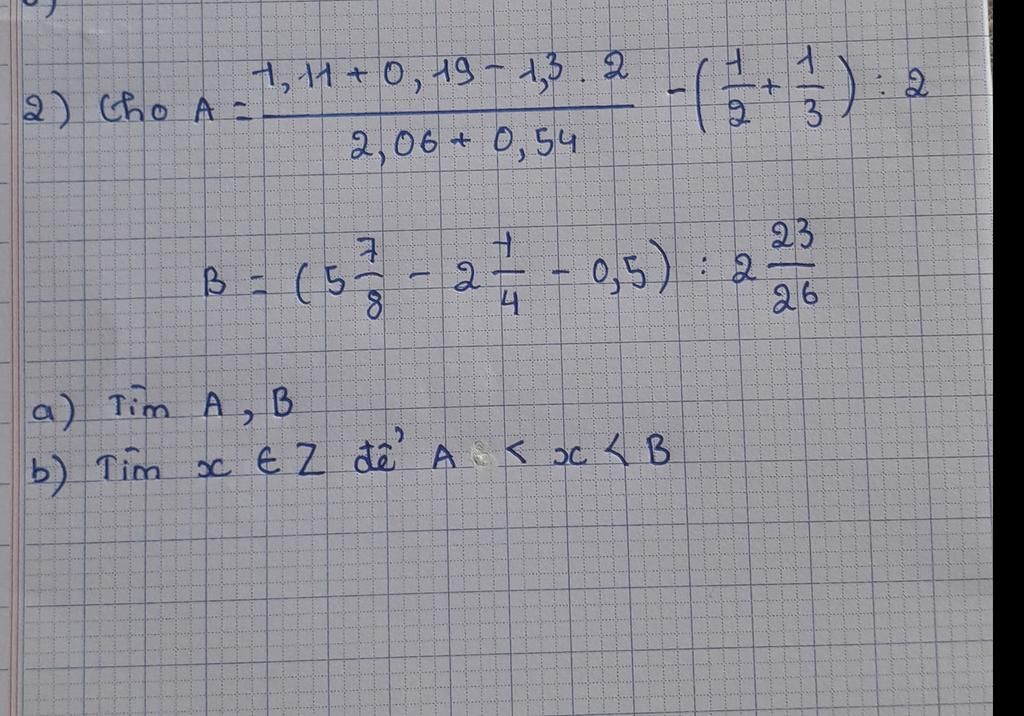 2) Cho A = \frac{1,11 + 0,19 - 1,3 . 2}{2,06 + 0,54} - (\frac{1}{2} + \frac{1}{3}) : 2
B = (5\frac{7}{8} - 2\frac{1}{4} - 0,5) : 2\frac{23}{26}
a) Tìm A, B
b) Tìm x ∈ Z để A < x < B